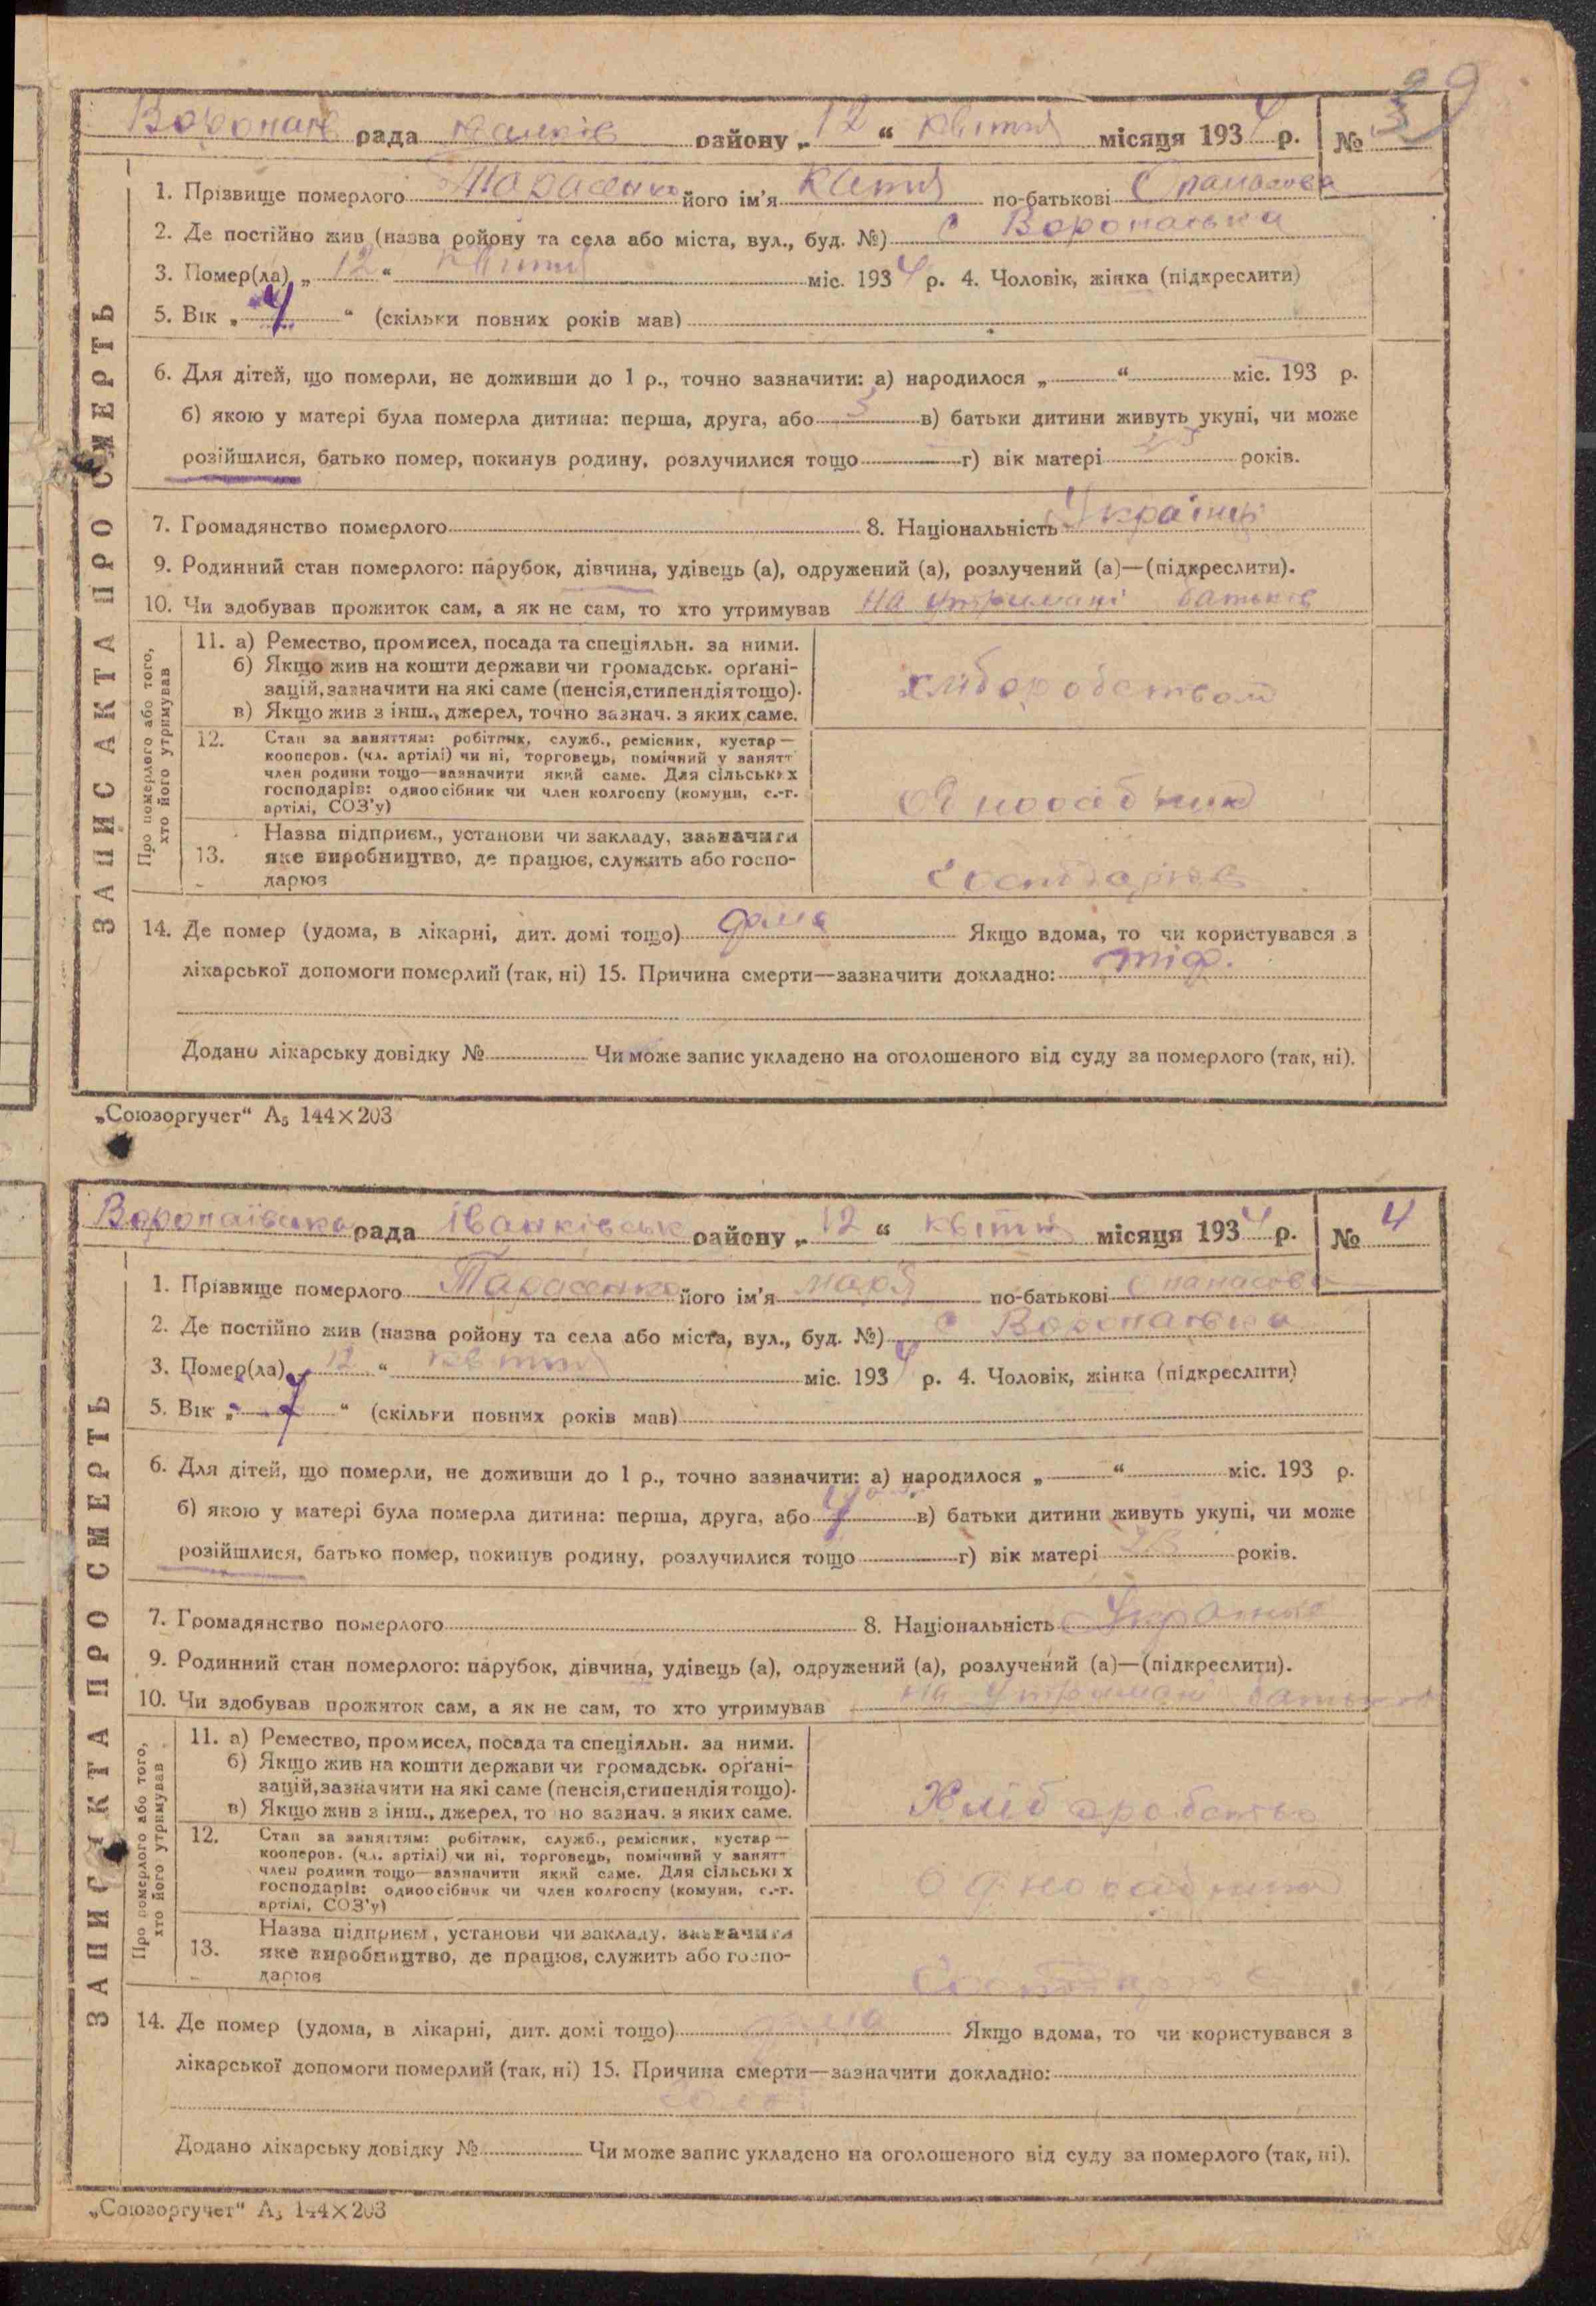 29
рада району „12“ квітня місяця 1934 р. № 3
1. Прізвище померлого Тарасенко його ім'я Катя по-батькові Опанасова
2. Де постійно жив (назва ройону та села або міста, вул., буд. №) с
3. Помер(ла) „12“ квітня міс. 1934 р. 4. Чоловік, жінка (підкреслити)
5. Вік „4“ (скільки повних років мав)
6. Для дітей, що померли, не доживши до 1 р., точно зазначити: а) народилося „ “ міс. 193 р.
б) якою у матері була померла дитина: перша, друга, або 3 в) батьки дитини живуть укупі, чи може
розійшлися, батько помер, покинув родину, розлучилися тощо г) вік матері років.
7. Громадянство померлого 8. Національність
9. Родинний стан померлого: парубок, дівчина, удівець (а), одружений (а), розлучений (а)—(підкреслити).
10. Чи здобував прожиток сам, а як не сам, то хто утримував на утримані батьків
ЗАПИС АКТА ПРО СМЕРТЬ
Про померлого або того, хто його утримував
11. а) Ремество, промисел, посада та спеціяльн. за ними.
б) Якщо жив на кошти держави чи громадськ. орґані-
зацій, зазначити на які саме (пенсія, стипендія тощо).
в) Якщо жив з інш., джерел, точно зазнач. з яких саме.
хліборобством
12. Стан за заняттям: робітник, служб., ремісник, кустар—
кооперов. (чл. артілі) чи ні, торговець, помічний у занятт
член родини тощо—зазначити який саме. Для сільських
господарів: одноосібник чи член колгоспу (комуни, с.-г.
артілі, СОЗ'у)
13. Назва підприєм., установи чи закладу, зазначити
яке виробництво, де працює, служить або госпо-
дарює
14. Де помер (удома, в лікарні, дит. домі тощо) дома Якщо вдома, то чи користувався з
лікарської допомоги померлий (так, ні) 15. Причина смерти—зазначити докладно: тіф.
Додано лікарську довідку № Чи може запис укладено на оголошеного від суду за померлого (так, ні).
„Союзоргучет“ А5 144×203
рада району „12“ квітня місяця 1934 р. № 4
1. Прізвище померлого Тарасенко його ім'я по-батькові Опанасова
2. Де постійно жив (назва ройону та села або міста, вул., буд. №) с
3. Помер(ла) 12 “ квітня міс. 1934 р. 4. Чоловік, жінка (підкреслити)
5. Вік „7“ (скільки повних років мав)
6. Для дітей, що померли, не доживши до 1 р., точно зазначити: а) народилося „ “ міс. 193 р.
б) якою у матері була померла дитина: перша, друга, або в) батьки дитини живуть укупі, чи може
розійшлися, батько помер, покинув родину, розлучилися тощо г) вік матері років.
7. Громадянство померлого 8. Національність
9. Родинний стан померлого: парубок, дівчина, удівець (а), одружений (а), розлучений (а)—(підкреслити).
10. Чи здобував прожиток сам, а як не сам, то хто утримував на утримані
ЗАПИС АКТА ПРО СМЕРТЬ
Про померлого або того, хто його утримував
11. а) Ремество, промисел, посада та спеціяльн. за ними.
б) Якщо жив на кошти держави чи громадськ. орґані-
зацій, зазначити на які саме (пенсія, стипендія тощо).
в) Якщо жив з інш., джерел, то но зазнач. з яких саме.
12. Стан за заняттям: робітник, служб., ремісник, кустар—
кооперов. (чл. артілі) чи ні, торговець, помічний у занятт
член родини тощо—зазначити який саме. Для сільських
господарів: одноосібник чи член колгоспу (комуни, с.-г.
артілі, СОЗ'у)
13. Назва підприєм., установи чи закладу, зазначити
яке виробництво, де працює, служить або госпо-
дарює
14. Де помер (удома, в лікарні, дит. домі тощо) дома Якщо вдома, то чи користувався з
лікарської допомоги померлий (так, ні) 15. Причина смерти—зазначити докладно:
Додано лікарську довідку № Чи може запис укладено на оголошеного від суду за померлого (так, ні).
„Союзоргучет“ А5 144×203